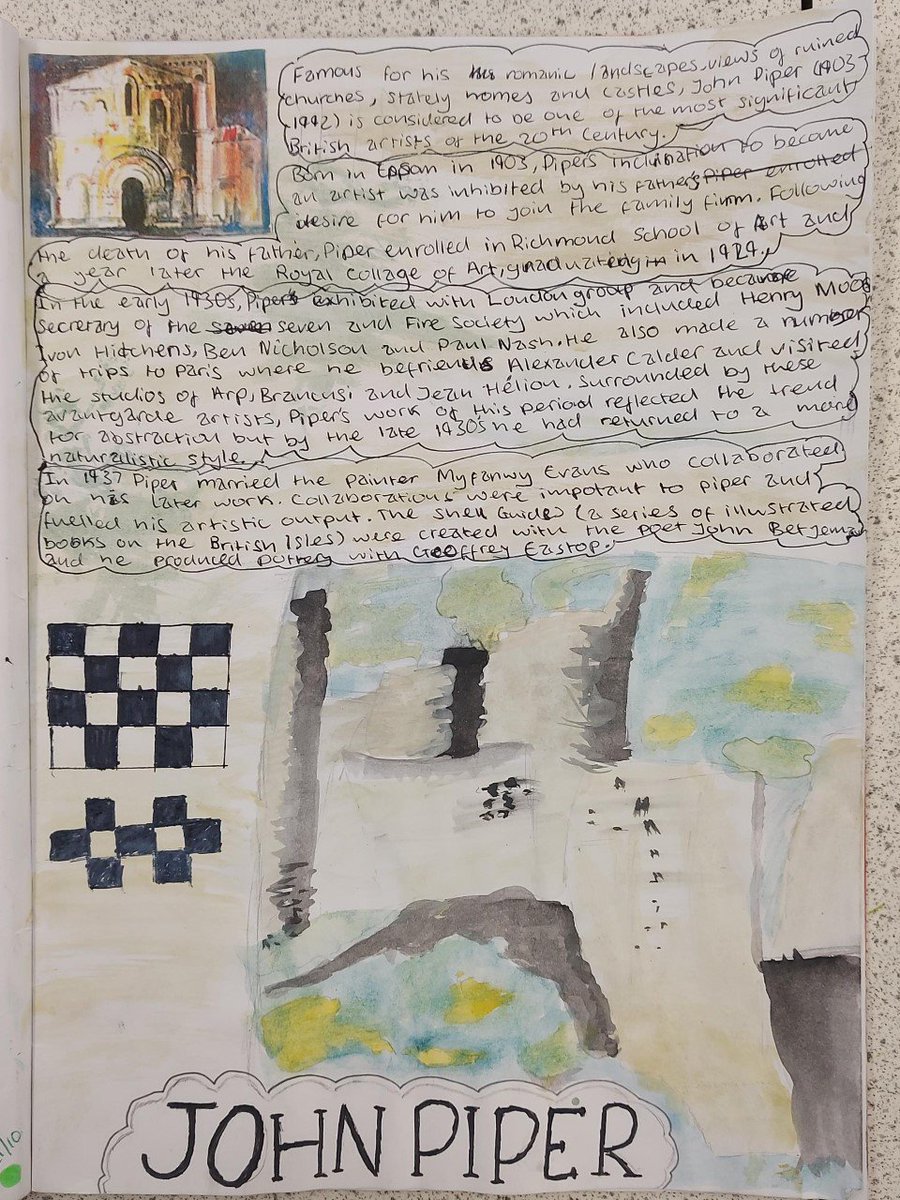 Famous for his romanic landscapes, views of ruined
churches, stately homes and castles, John Piper (1903
1992) is considered to be one of the most significant
British artists of the 20th Century.
Born in Epsom in 1903, Piper's inclination to become
an artist was inhibited by his father's Piper enrolled
desire for him to join the family firm. Following
the death of his father, Piper enrolled in Richmond School of Art and
a year later the Royal Collage of Art, graduateing in 1929.
In the early 1930s, Piper's exhibited with London group and became
secrerary of the seven seven and Five Society which included Henry Moore
Ivon Hitchens, Ben Nicholson and Paul Nash. He also made a number
of trips to Paris where he befriends Alexander Calder and visited
the studios of Arp, Brancusi and Jean Hélion. Surrounded by these
avantgarde artists, Piper's work of this period reflected the trend
for abstraction but by the late 1930s he had returned to a more
naturalistic style.
In 1937 Piper married the painter Myfanwy Evans who collaborated
on his later work. Collaborations were impotant to piper and
fuelled his artistic output. The Shell Guides (a series of illustrated
books on the British Isles) were created with the poet John Betjeman
and he produced pottery with Geoffrey Eastop.
JOHN PIPER